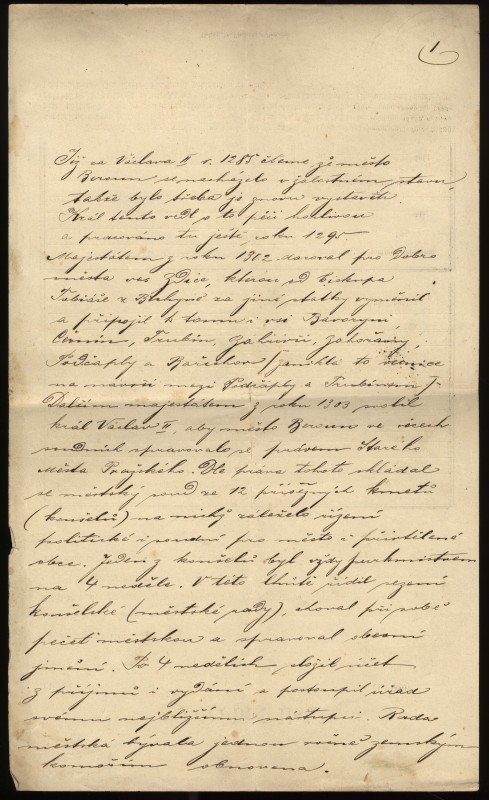 1
Již za Václava II r. 1285 čteme, že město
Beroun se nacházelo v žalostném stavu,
takže bylo třeba je znovu vystavěti.
Král tento vedl o to péči horlivou
a pracováno tu ještě roku 1295.
Majestátem z roku 1302 daroval pro Dobro
města ves Zdice, kterou od biskupa
Tobiáše z Bechyně za jiné statky vyměnil
a připojil k tomu i vsi Bavoryni,
Černín, Trubín, Zahořany,
Podčáply a Račichov (zaniklá to vesnice
na návrší mezi Podčáply a Trubínem).
Dalším majestátem z roku 1303 svolil
král Václav II, aby město Beroun ve všech
soudních spravovalo se právem Starého
Města Pražského. Dle práva tohoto skládal
se městský soud ze 12 přísežných kmetů
(konšelů) na nichž záleželo řízení
politické i soudní pro město i přivtělené
obce. Jeden z konšelů byl vždy purkmistrem
na 4 neděle. V této lhůtě řídil sezení
konšelské (městské rady), choval při sobě
pečeť městskou a spravoval obecní
jmění. Po 4 nedělích složil účet
z příjmů i vydání a postoupil úřad
svému nejbližšímu nástupci. Rada
městská bývala jednou ročně zemským
komořím obnovena.